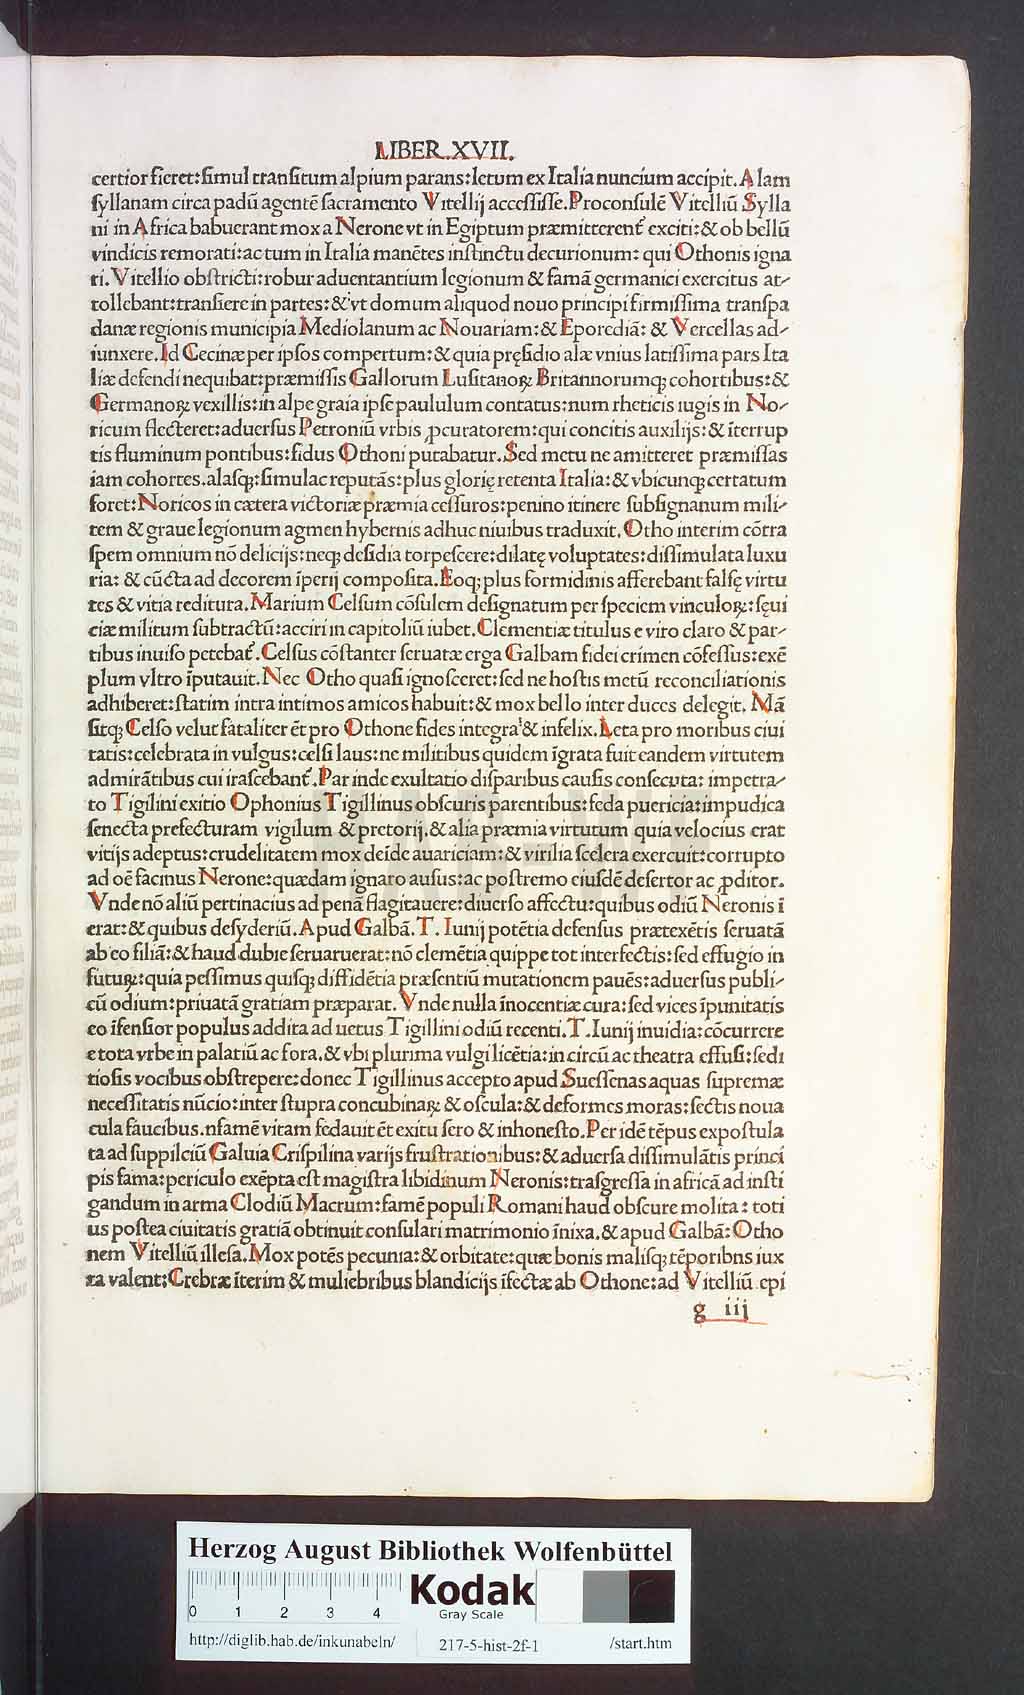 LIBER.XVII.
certior fieret:simul transitum alpium parans:letum ex Italia nuncium accipit.Alam
syllanam circa padū agentē sacramento Vitellij accessisse.Proconsulē Vitelliū Sylla
ni in Africa babuerant mox a Nerone vt in Egiptum præmitterent᷑ exciti:& ob bellū
vindicis remorati:ac tum in Italia manētes instinctu decurionum: qui Othonis igna
ri.Vitellio obstricti:robur aduentantium legionum & famā germanici exercitus at-
tollebant:transiere in partes:& vt domum aliquod nouo principi firmissima transpa
danæ regionis municipia Mediolanum ac Nouariam:& Eporediā: & Vercellas ad-
iunxere.Id Cecinæ per ipsos compertum:& quia pręsidio alæ vnius latissima pars Ita
liæ defendi nequibat:præmissis Gallorum Lusitanoꝝ Britannorumqꝫ cohortibus:&
Germanoꝝ vexillis:in alpe graia ipse paululum contatus:num rheticis iugis in No-
ricum flecteret:aduersus Petroniū vrbis ꝓcuratorem:qui concitis auxilijs:& īterrup
tis fluminum pontibus:fidus Othoni putabatur.Sed metu ne amitteret præmissas
iam cohortes.alasqꝫ:simulac reputās:plus glorię retenta Italia:& vbicunqꝫ certatum
foret:Noricos in cætera victoriæ præmia cessuros:penino itinere subsignanum mili-
tem & graue legionum agmen hybernis adhuc niuibus traduxit.Otho interim cōtra
spem omnium nō delicijs:neqꝫ desidia torpescere:dilatę voluptates:dissimulata luxu
ria: & cūcta ad decorem īperij composita.Eoqꝫ plus formidinis afferebant falsę virtu
tes & vitia reditura.Marium Celsum cōsulem designatum per speciem vinculoꝝ:sęui
ciæ militum subtractū:acciri in capitoliū iubet.Clementiæ titulus e viro claro & par-
tibus inuiso petebat᷑.Celsus cōstanter seruatæ erga Galbam fidei crimen cōfessus:exē
plum vltro īputauit.Nec Otho quasi ignosceret:sed ne hostis metū reconciliationis
adhiberet:statim intra intimos amicos habuit:& mox bello inter duces delegit. Mā
sitqꝫ Celso velut fataliter ēt pro Othone fides integra & infelix.Leta pro moribus ciui
tatis:celebrata in vulgus:celsi laus:ne militibus quidem īgrata fuit eandem virtutem
admirātibus cui irascebant᷑.Par inde exultatio disparibus causis consecuta: impetra-
to Tigilini exitio Ophonius Tigillinus obscuris parentibus:feda puericia:impudica
senecta prefecturam vigilum & pretorij.& alia præmia virtutum quia velocius erat
vitijs adeptus:crudelitatem mox deīde auariciam:& virilia scelera exercuit:corrupto
ad oē facinus Nerone:quædam ignaro ausus:ac postremo eiusdē desertor ac ꝓditor.
Vnde nō aliū pertinacius ad penā flagitauere:diuerso affectu:quibus odiū Neronis ī
erat:& quibus desyderiū.Apud Galbā.T. Iunij potētia defensus prætexētis seruatā
ab eo filiā:& haud dubie seruaruerat:nō clemētia quippe tot interfectis:sed effugio in
futuꝝ:quia pessimus quisqꝫ diffidētia præsentiū mutationem pauēs:aduersus publi-
cū odium:priuatā gratiam præparat.Vnde nulla īnocentiæ cura:sed vices īpunitatis
eo īfensior populus addita ad uetus Tigillini odiū recenti.T.Iunij inuidia:cōcurrere
e tota vrbe in palatiū ac fora.& vbi plurima vulgi licētia:in circū ac theatra effusi:sedi
tiosis vocibus obstrepere:donec Tigillinus accepto apud Suessenas aquas supremæ
necessitatis nūcio:inter stupra concubinaꝝ & oscula:& deformes moras:sectis noua
cula faucibus.nfamē vitam fedauit ēt exitu sero & inhonesto.Per idē tēpus expostula
ta ad suppilciū Galuia Crispilina varijs frustrationibus:& aduersa dissimulātis princi
pis fama:periculo exēpta est magistra libidinum Neronis:trasgressa in africā ad insti
gandum in arma Clodiū Macrum:famē populi Romani haud obscure molita: toti
us postea ciuitatis gratiā obtinuit consulari matrimonio īnixa.& apud Galbā:Otho
nem Vitelliū illesa.Mox potēs pecunia:& orbitate:quæ bonis malisqꝫ tēporibns iux
ta valent:Crebræ īterim & muliebribus blandicijs īfectæ ab Othone:ad Vitelliū epi
g iij
Herzog August Bibliothek Wolfenbüttel
0 1 2 3 4
Kodak
Gray Scale
http://diglib.hab.de/inkunabeln/ 217-5-hist-2f-1 /start.htm